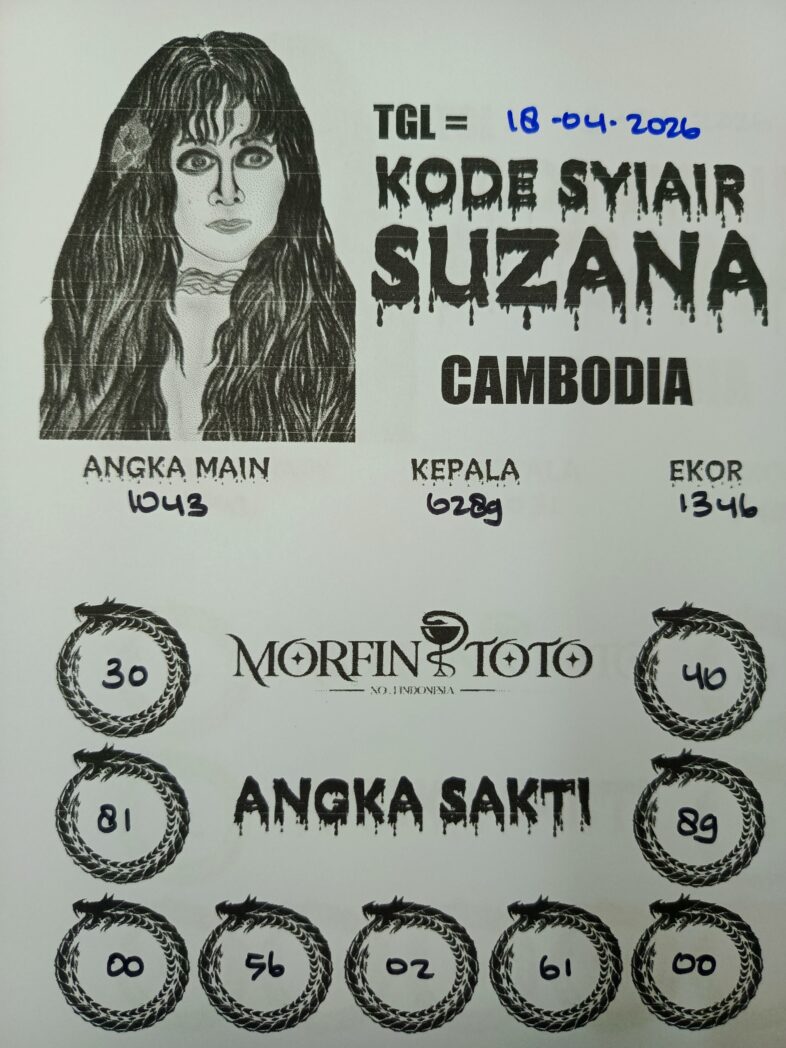 TGL = 18-04-2026
KODE SYIAIR
SUZANA
CAMBODIA
ANGKA MAIN KEPALA EKOR
1043 6289 1346
MORFIN TOTO
NO.1 INDONESIA
30 40
ANGKA SAKTI
81 89
00 56 02 61 00